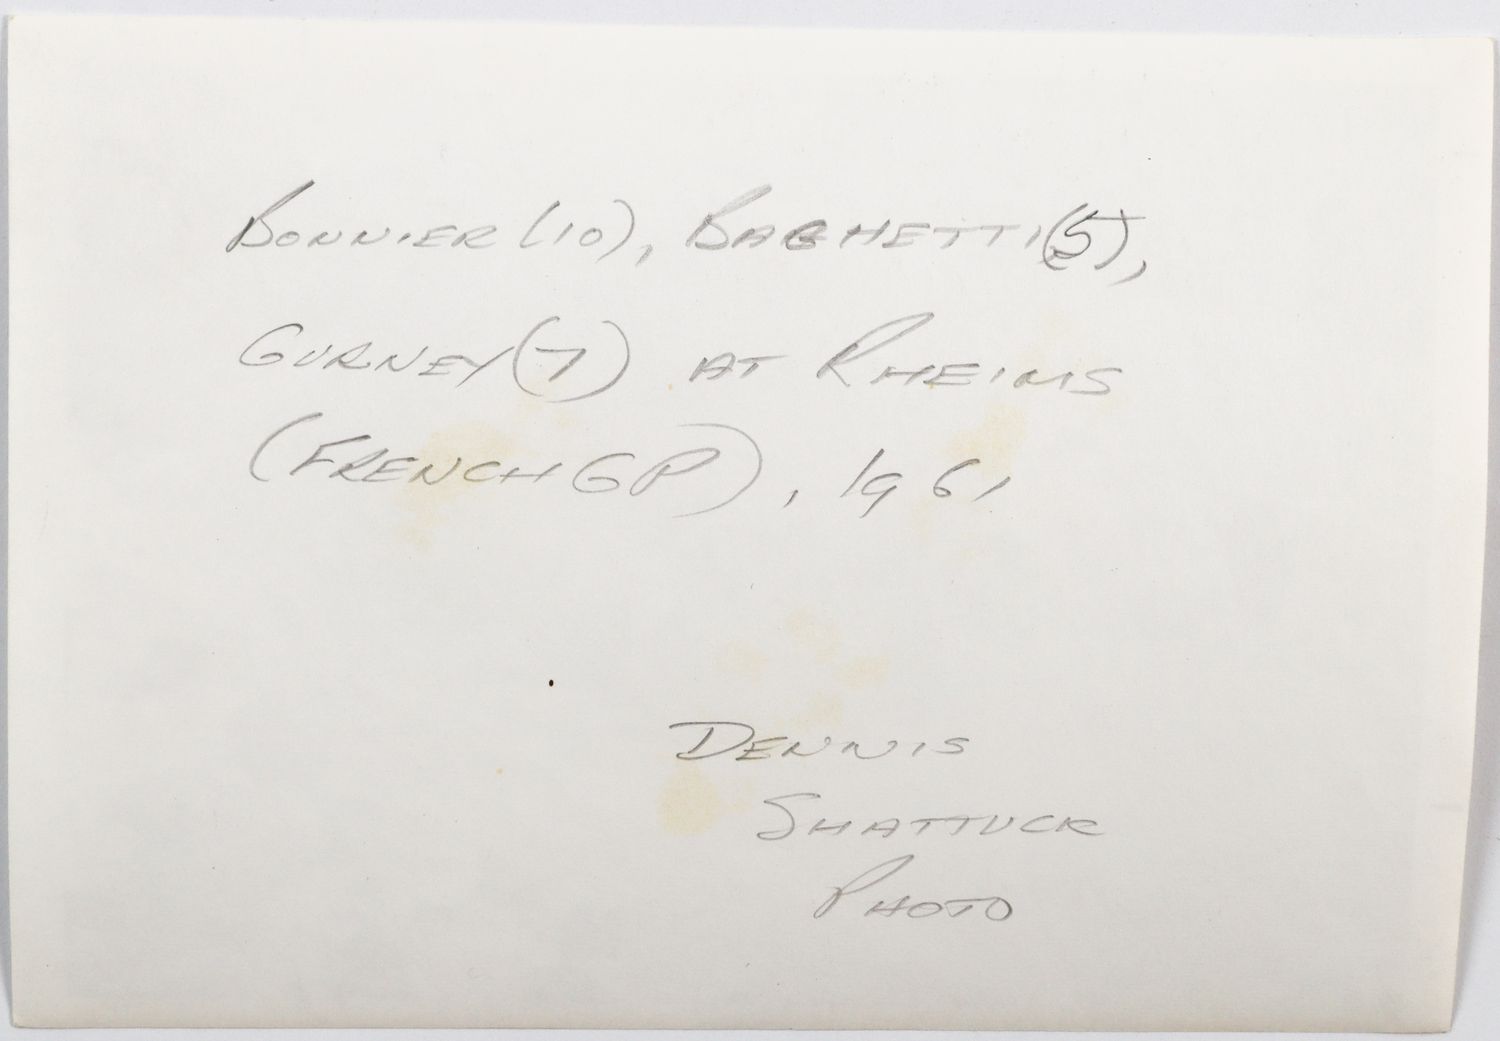 BONNIER (10), BAGHETTI (5),
GURNEY (7) AT RHEIMS
(FRENCH GP), 1961
DENNIS
SHATTUCK
PHOTO